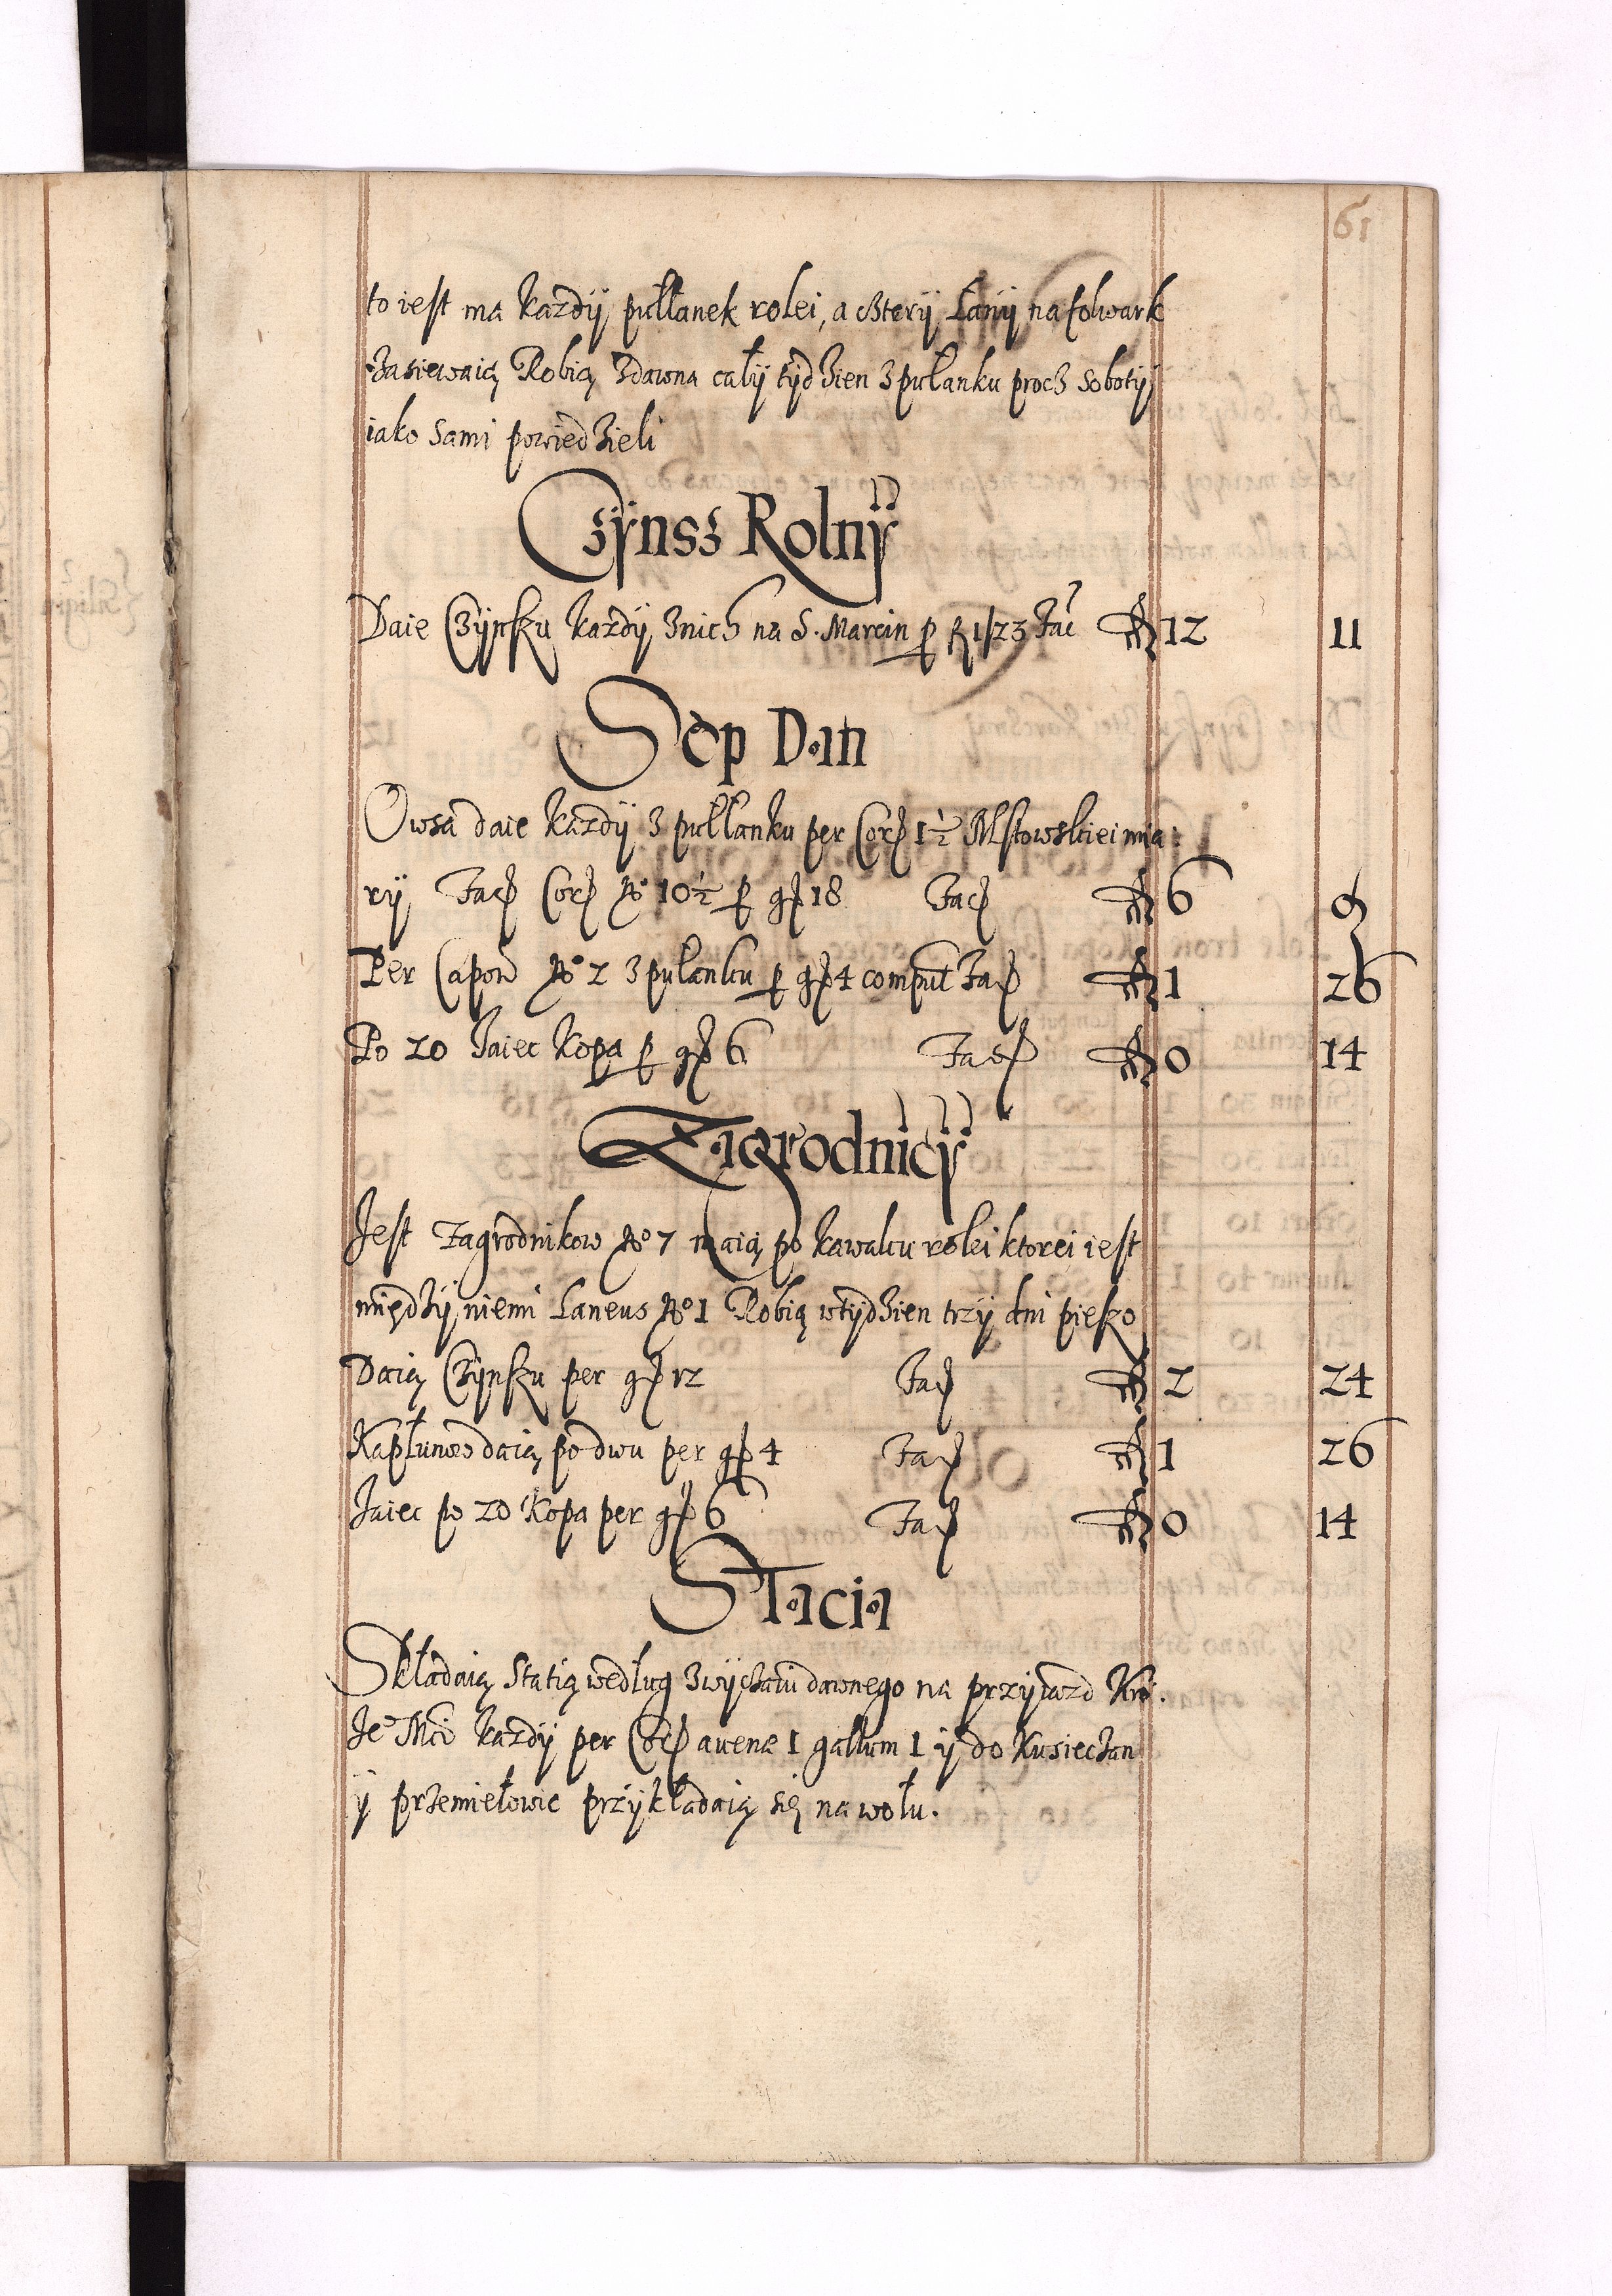 61
to iest ma każdÿ pułłanek rolei, a czterÿ Łanÿ na folwark
zasiewaią Robią zdawna całÿ tÿdzien z pułanku procz sobotÿ
iako sami powiedzieli
Czÿnsz Rolnÿ
Daie Czÿnszu każdÿ znich na S. Marcin p fl 1/23 Fac fl 12 11
Sep Dan
Owsa daie każdÿ z pułłanku per Cor 1½ Mstowskiei mia:
rÿ Fac Cor No 10½ p gr 18 Fac fl 6 9
Per Capon No 2 z pułanku p gr 4 comput Fac fl 1 26
Po 20 Jaiec kopa p gr 6 Fac fl 0 14
Zagrodnicÿ
Jest Zagrodnikow No 7 maią po kawałcu rolei ktorei iest
międzÿ niemi Laneus No 1 Robią w tÿdzien trzÿ dni pieszo
Daią Czÿnszu per gr 12 Fac fl 2 24
Kapłunow daią po dwu per gr 4 Fac fl 1 26
Jaiec po 20 Kopa per gr 6 Fac fl 0 14
Stacia
Składaią Statią według zwÿczaiu dawnego na przÿiazd Kro.
Je Mci każdÿ per Cor auenæ 1 gallum 1 ÿ do Kusieczan
ÿ przemiełowic przÿkładaią się na wołu.